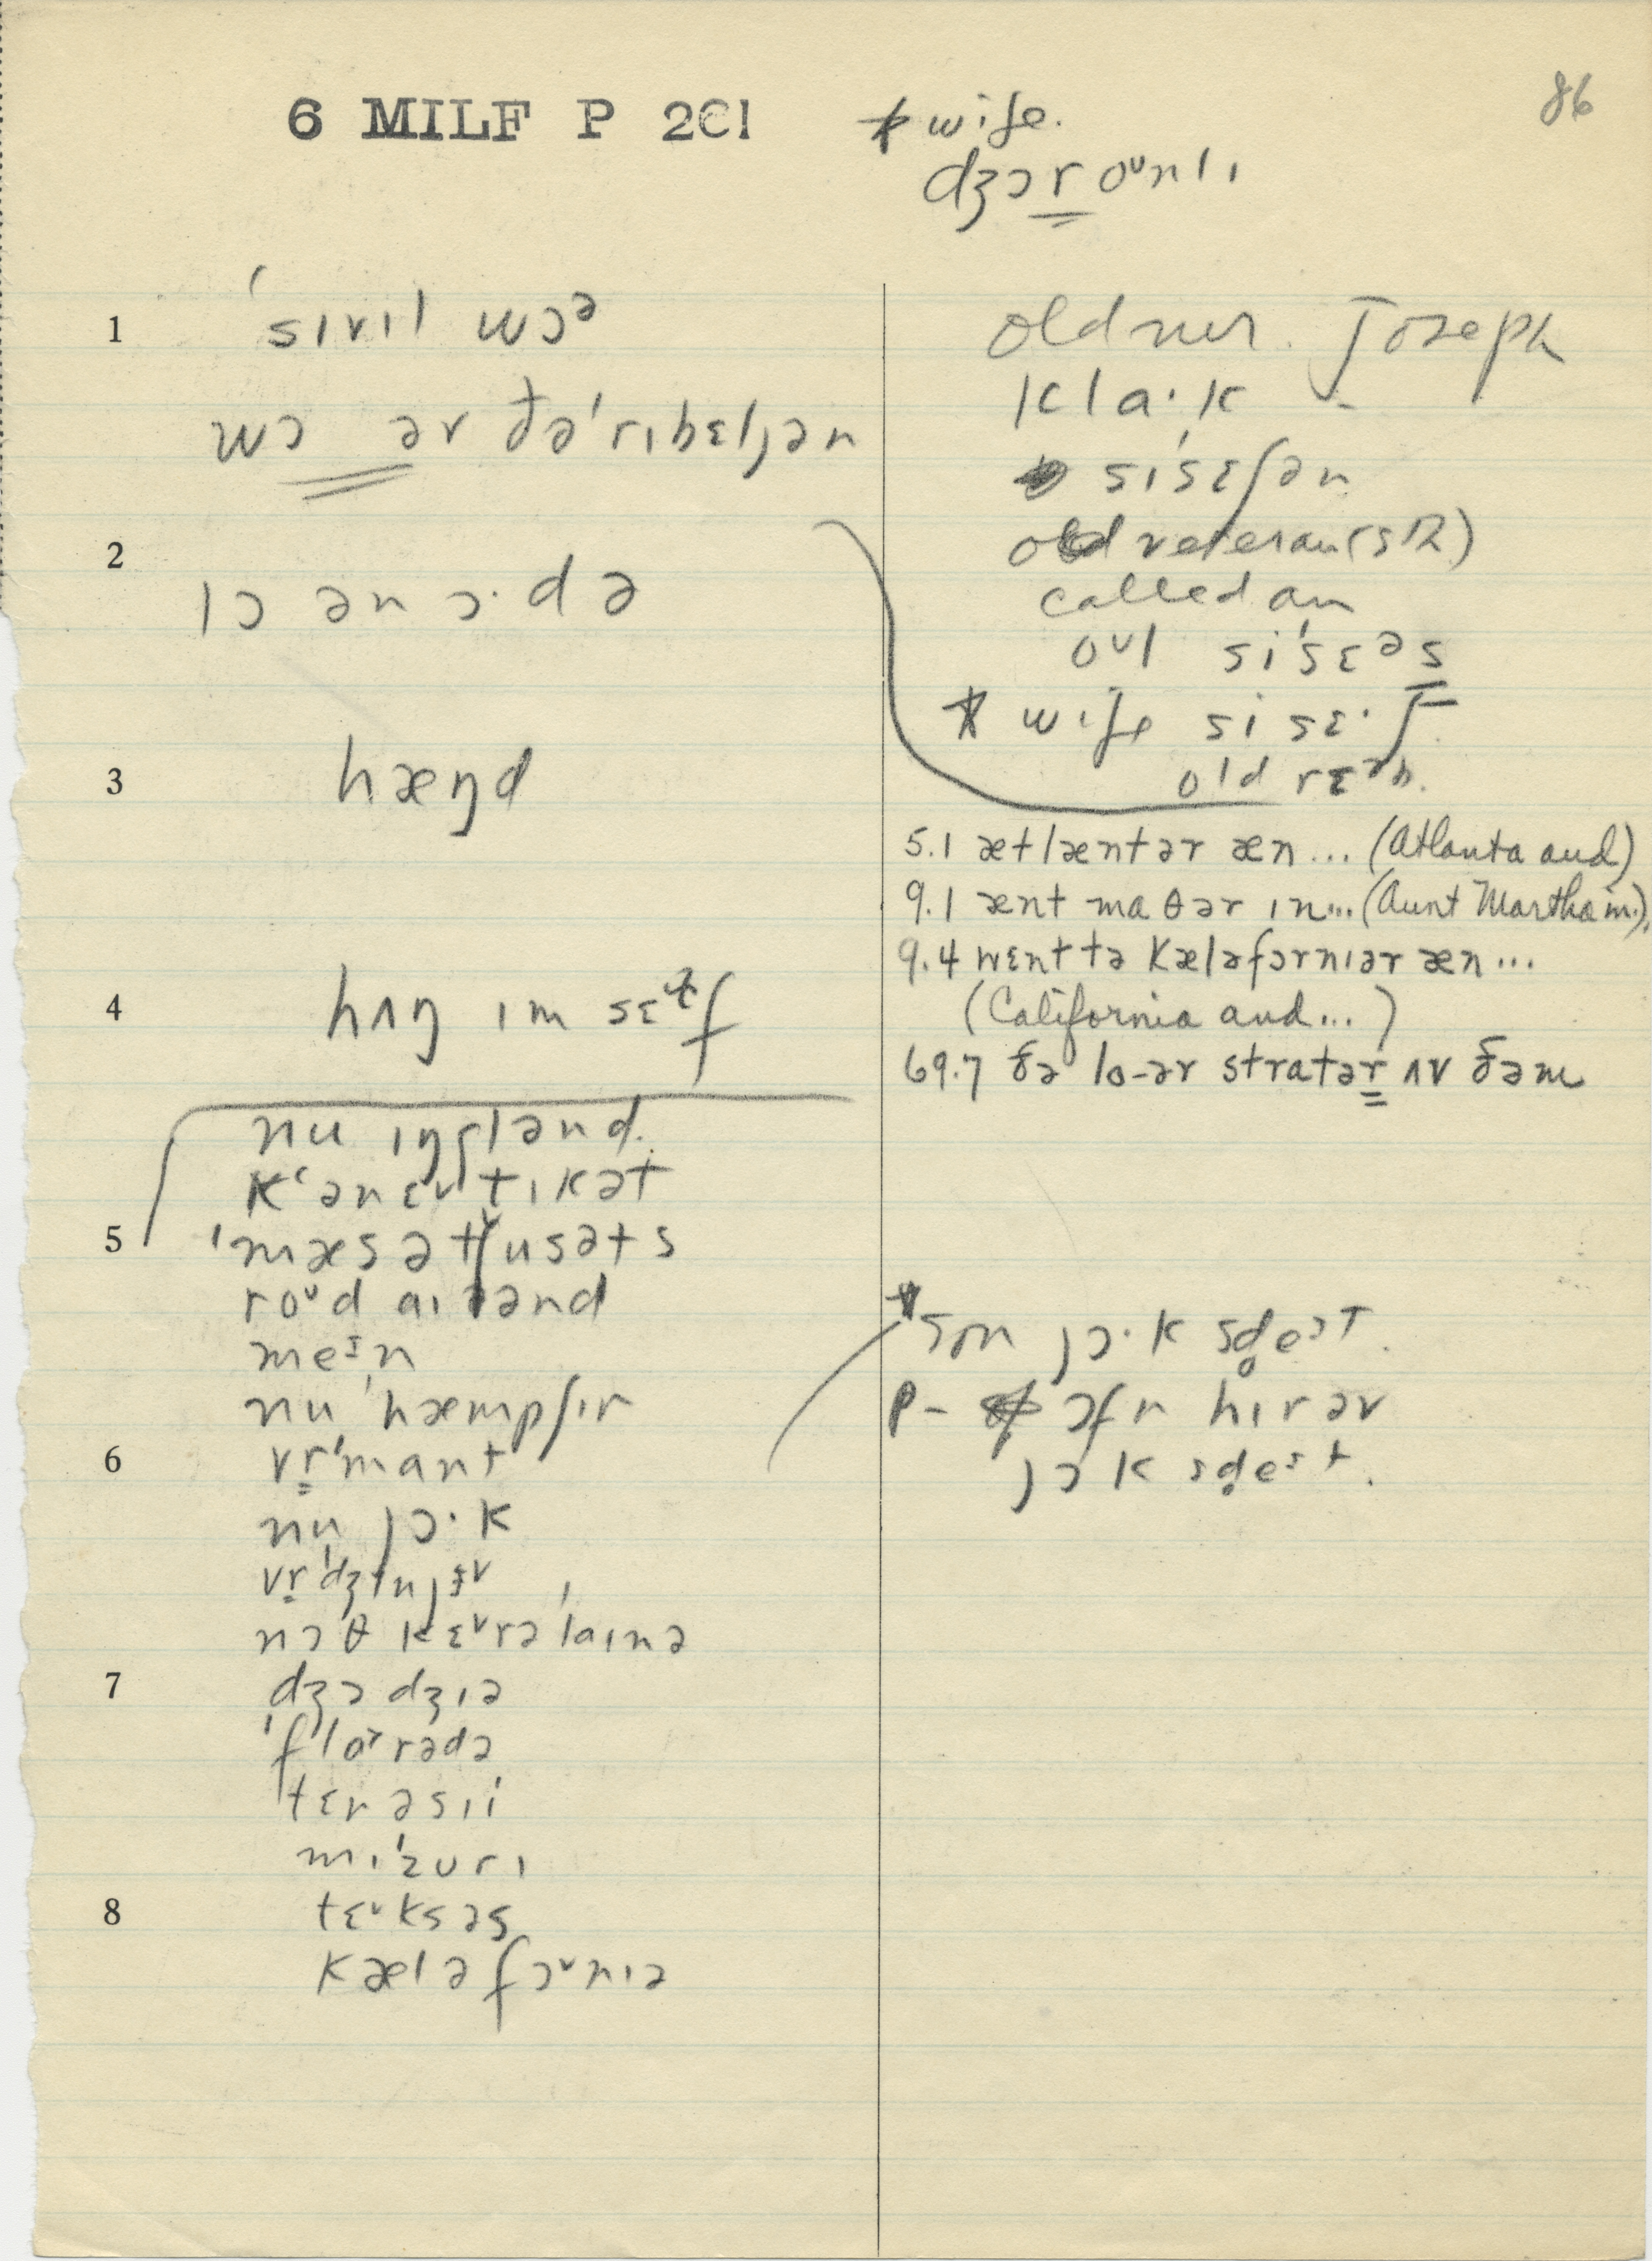 6 MILF P 201
86
* wife.
dʒɔr oᵛnlı
1 ˈsıvıl wɔᵊ
wɔ əv ðəˈrıbɛljən
2 lɔ ən ɔ·də
3 hæŋd
4 hʌŋ ım sɛf
nu ıŋglənd.
kʻənɛᵛtıkət
5 ˈmæsətʃusəts
roᵛd aılənd
meᶦn
nuˈhæmpʃır
6 vr̩ˈmant
nu jɔ·k
nɔθ kɛᵛrəˈlaınə
7 dʒɔdʒıə
ˈflɑrədə
tɛnəsıi
mıˈzurı
8 tɛᵛksəs
kæləfɔᵛnıə
older. Joseph
kla·k
sıˈsɛʃən
old veteran (s12)
called an
oᵛl siˈsɛᵊs
* wife sisɛ·ʃ
old rɛᵊb.
5.1 ætlæntər æn... (Atlanta and)
9.1 ænt maθər ın... (Aunt Martha in.).
9.4 wɛnt tə kæləfɔrnıər æn...
(California and...)
69.7 ðə lo-ər stratər ʌv ðəm
* son jɔ·k sd̥eᶦt.
P- ɔfn hır əv
jɔk sd̥eᶦt.